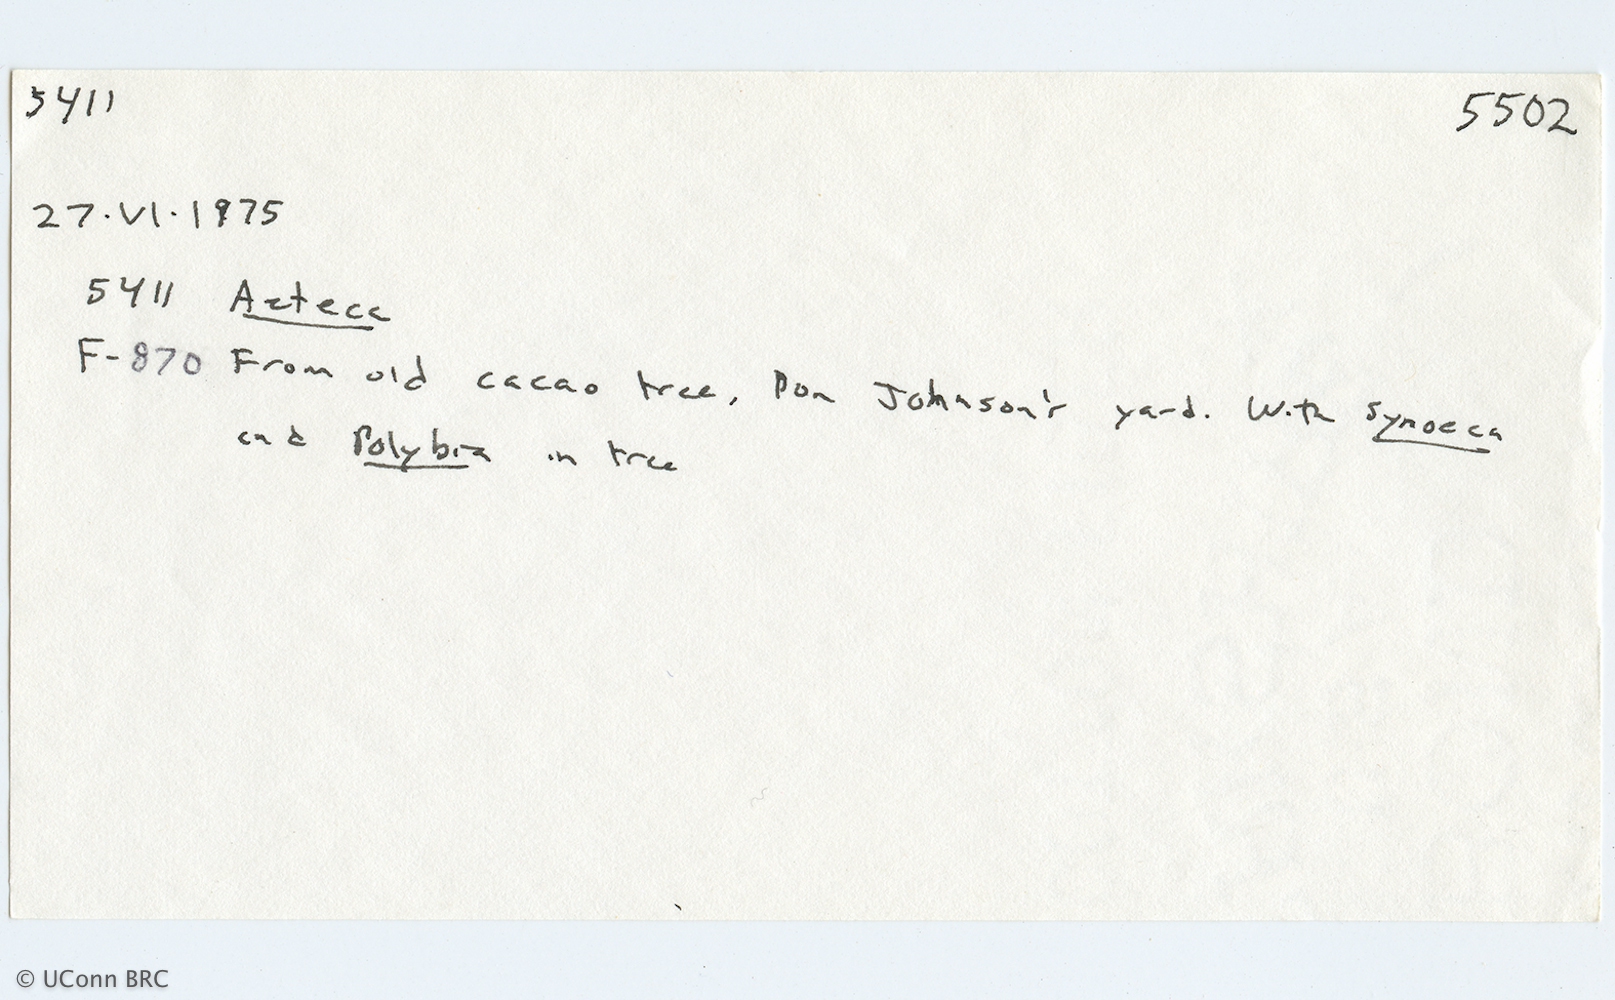 5411 5502
27·VI·1975
5411 Azteca
F-870 From old cacao tree, Don Johnson's yard. With Synoeca
and Polybia in tree
© UConn BRC